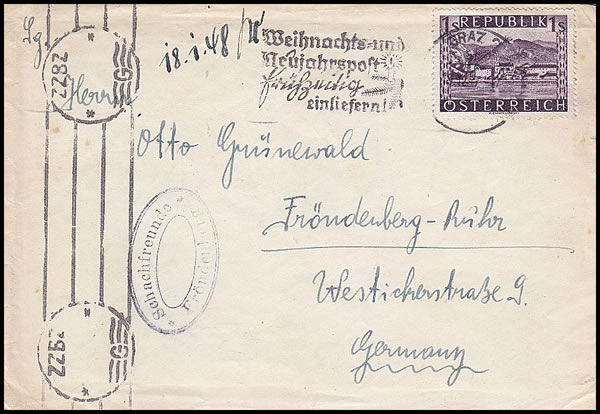 Lg
18.1.48
Weihnachts- und
Neujahrspost
frühzeitig
einliefern!
REPUBLIK 1s
GRAZ 2
ÖSTERREICH
Herrn
Otto Grünewald
Fröndenberg-Ruhr
Westickerstraße 9.
Germany
Schachfreunde
ZZBZ
G
ZZBZ
G